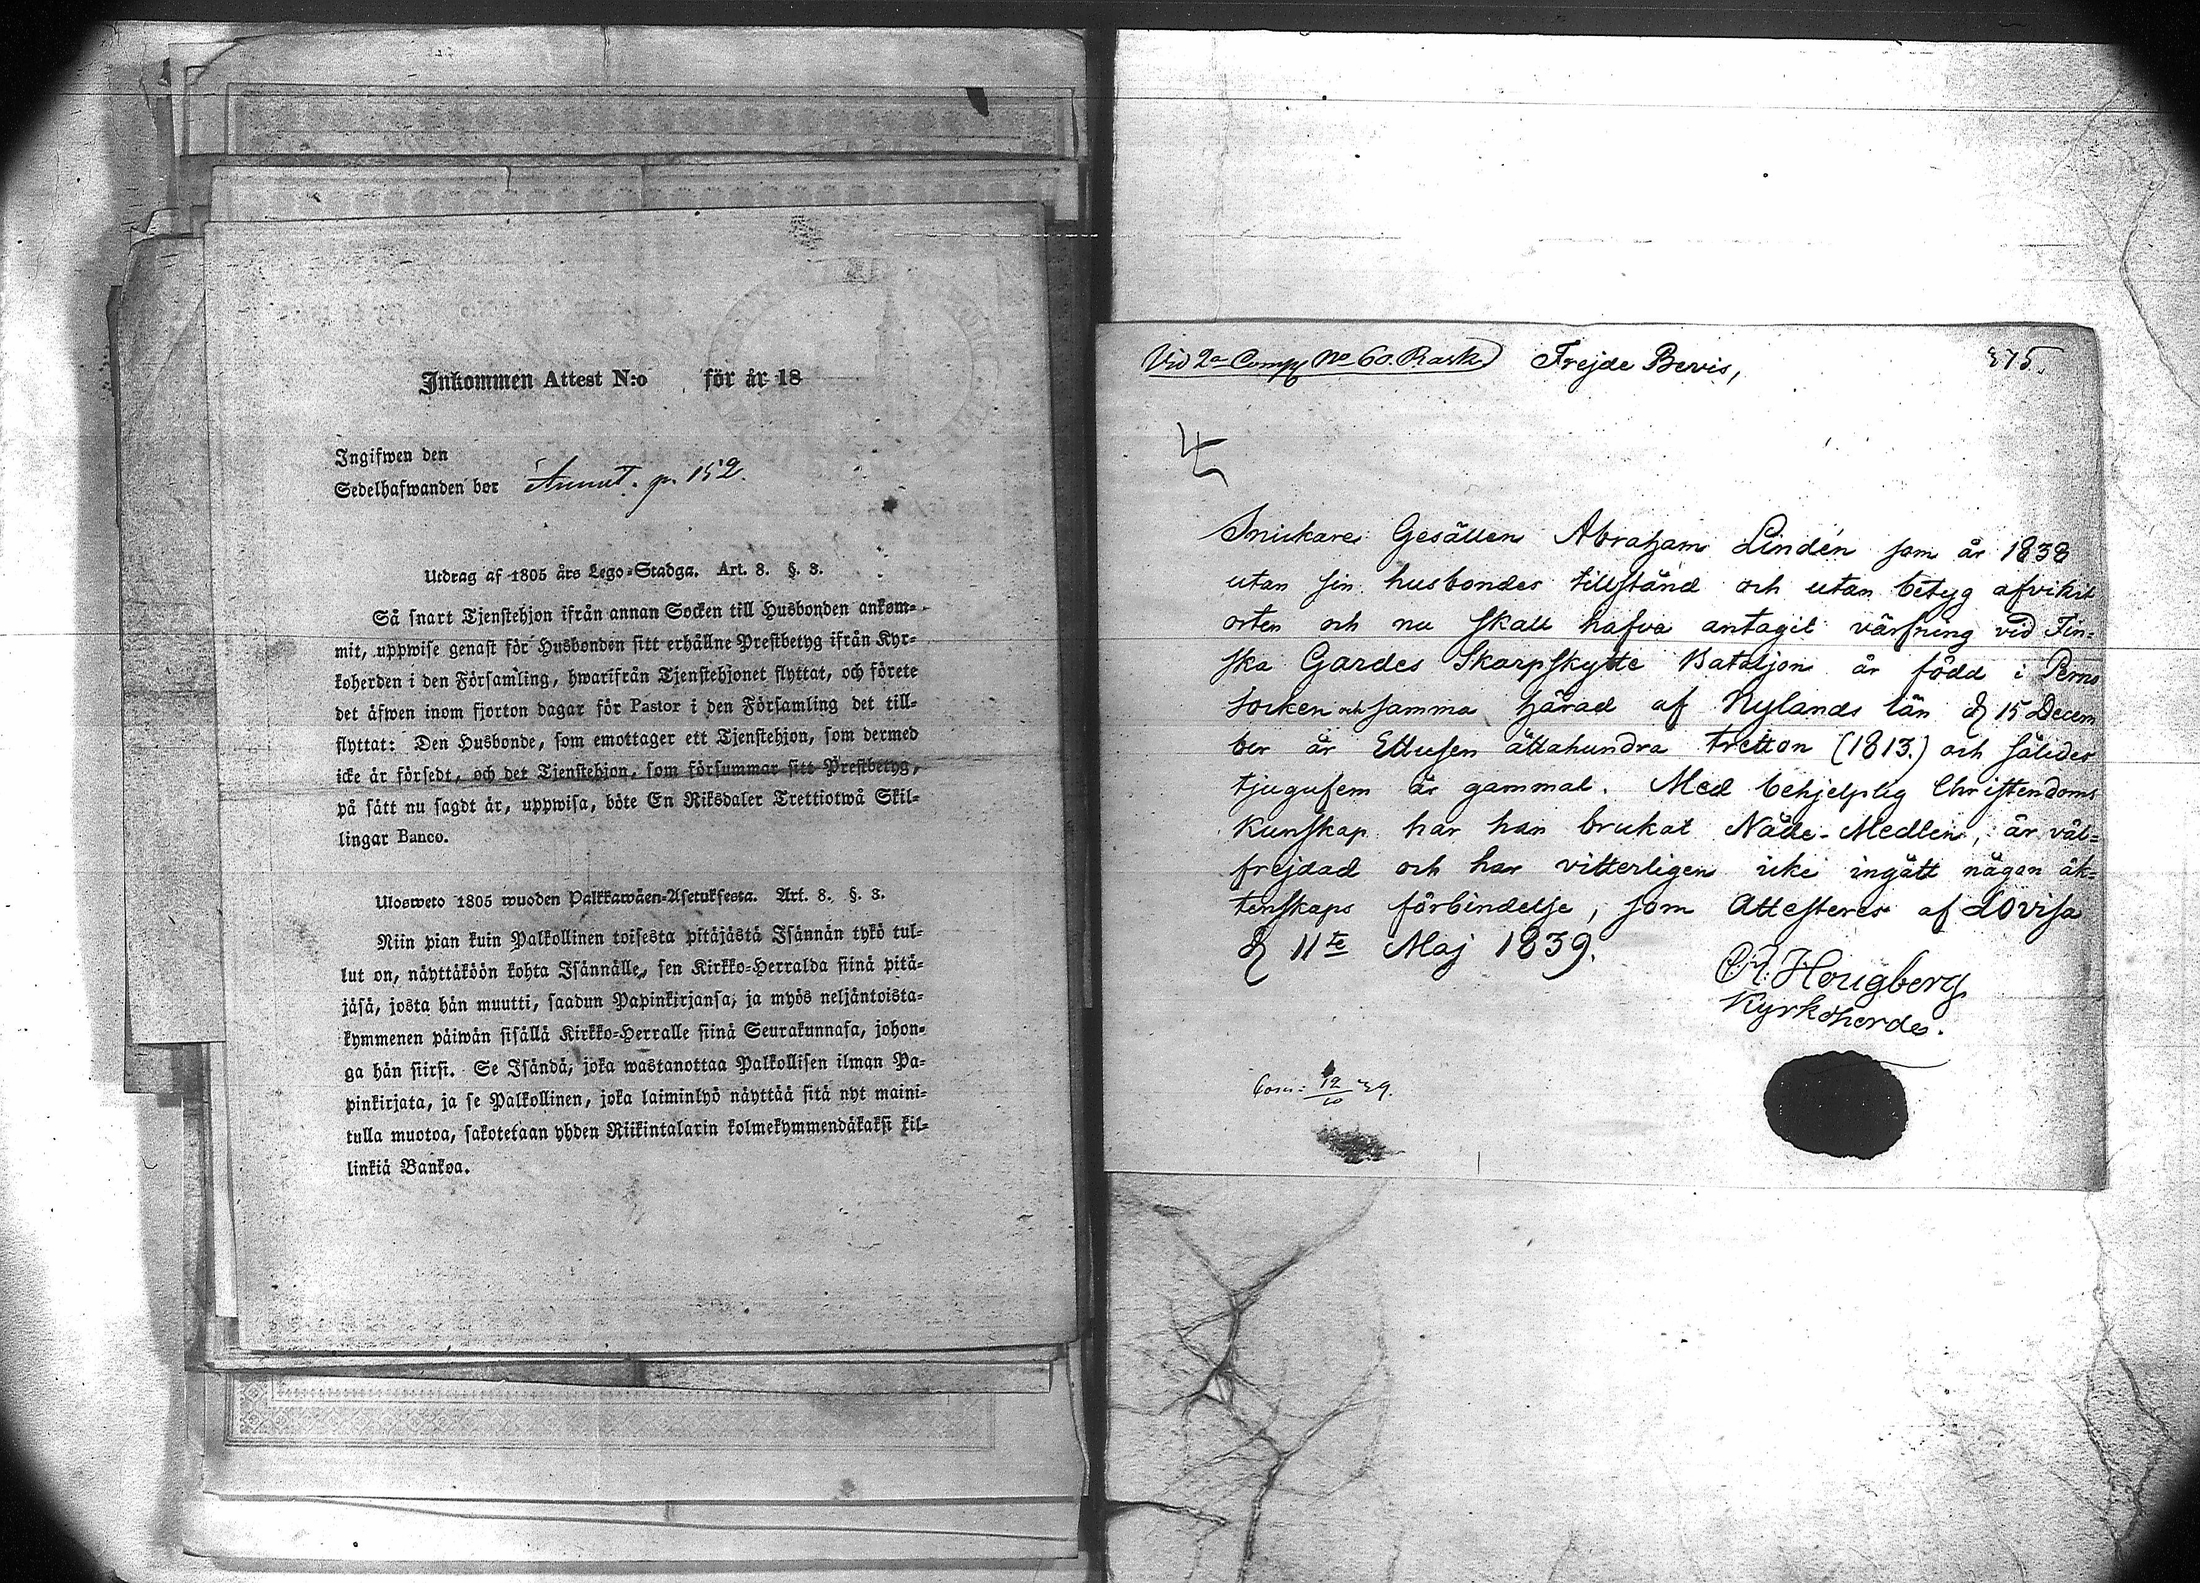 Inkommen Attest N:o för år 18
Ingifwen den
Sedelhafwanden bor Annot. p. 152.
Utdrag af 1805 års Lego-Stadga. Art. 8. §. 3.
Så snart Tjenstehjon ifrån annan Socken till Husbonden ankom-
mit, uppwise genast för Husbonden sitt erhållne Prestbetyg ifrån Kyr-
koherden i den Församling, hwarifrån Tjenstehjonet flyttat, och förete
det äfwen inom fjorton dagar för Pastor i den Församling det till-
flyttat: Den Husbonde, som emottager ett Tjenstehjon, som dermed
icke är försedt, och det Tjenstehjon, som försummar sitt Prestbetyg,
på sätt nu sagdt är, uppwisa, böte En Riksdaler Trettiotwå Skil-
lingar Banco.
Ulosweto 1805 wuoden Palkkawäen-Asetuksesta. Art. 8. §. 3.
Niin pian kuin Palkollinen toisesta pitäjästä Isännän tykö tul-
lut on, näyttäköön kohta Isännälle, sen Kirkko-Herralda siinä pitä-
jäsä, josta hän muutti, saadun Papinkirjansa; ja myös neljäntoista-
kymmenen päiwän sisällä Kirkko-Herralle siinä Seurakunnasa, johon-
ga hän siirsi. Se Isändä, joka wastanottaa Palkollisen ilman Pa-
pinkirjata, ja se Palkollinen, joka laiminlyö näyttää sitä nyt maini-
tulla muotoa, sakotetaan yhden Riikintalarin kolmekymmendäkaksi kil-
linkiä Bankoa.
Vid 2a Compy No 60. Rask) Frejde Bevis, 375.
Snickare Gesällen Abraham Lindén som år 1838
utan sin husbondes tillstånd och utan betyg afvikit
orten och nu skall hafva antagit värfning vid Fin-
ska Gardes Skarpskytte Bataljon är född i Perno
Socken och samma härad af Nylands län d 15 Decem
ber år Ettusen åttahundra tretton (1813.) och således
tjugufem år gammal. Med behjelplig Christendoms
Kunskap har han brukat Nåde-Medlen, är väl-
frejdad och har vitterligen icke ingått någon äk-
tenskaps förbindelse, som Attesteres af Lovisa
d 11te Maj 1839.
Hougberg
Kyrkoherde.
Com: 12/10 39.